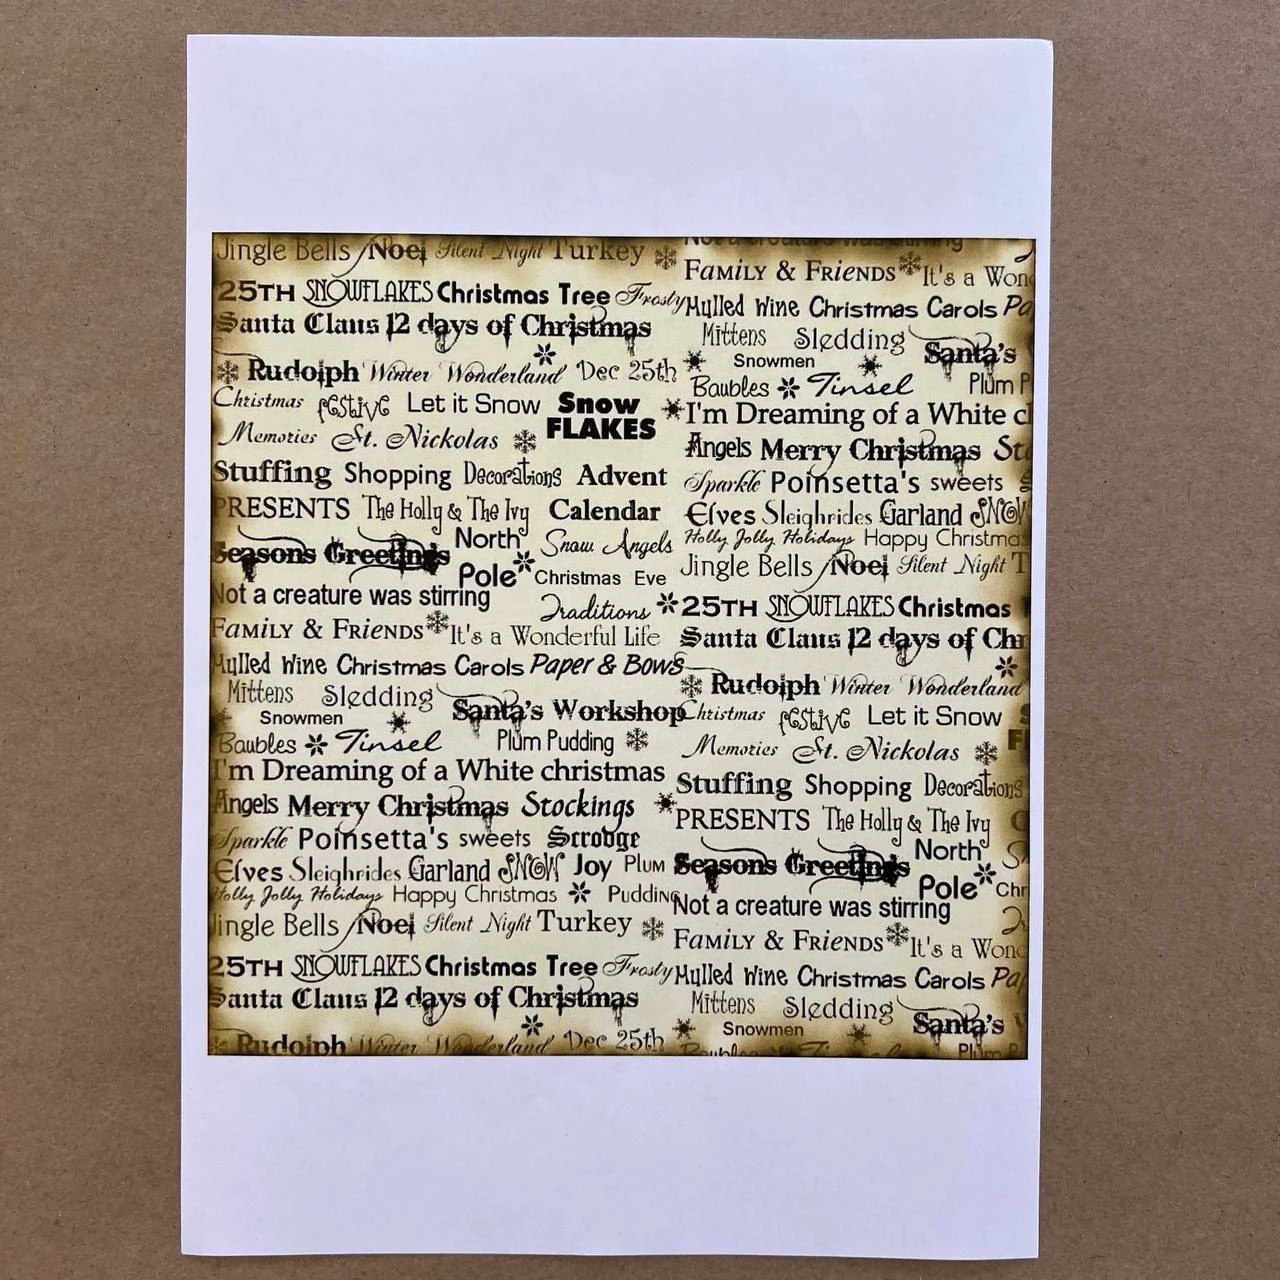 Jingle Bells Noel Silent Night Turkey
25TH SNOWFLAKES Christmas Tree Frosty
Santa Claus 12 days of Christmas
Rudolph Winter Wonderland Dec 25th
Christmas FESTIVE Let it Snow Snow
FLAKES
Memories St. Nickolas
Stuffing Shopping Decorations Advent
PRESENTS The Holly & The Ivy Calendar
Seasons Greetings North
Pole
Snow Angels
Christmas Eve
Not a creature was stirring
Traditions
FAMILY & FRIENDS It's a Wonderful Life
Mulled Wine Christmas Carols Paper & Bows
Mittens Sledding
Snowmen
Santa's Workshop
Baubles Tinsel Plum Pudding
I'm Dreaming of a White christmas
Angels Merry Christmas Stockings
Sparkle Poinsetta's sweets Scrooge
Elves Sleighrides Garland SNOW Joy Plum
Holly Jolly Holidays Happy Christmas Pudding
Jingle Bells Noel Silent Night Turkey
25TH SNOWFLAKES Christmas Tree Frosty
Santa Claus 12 days of Christmas
Rudolph Winter Wonderland Dec 25th
Not a creature was stirring
FAMILY & FRIENDS It's a Won
Mulled Wine Christmas Carols Pa
Mittens Sledding
Snowmen
Santa's
Baubles Tinsel Plum P
I'm Dreaming of a White c
Angels Merry Christmas Sto
Sparkle Poinsetta's sweets
Elves Sleighrides Garland SNOW
Holly Jolly Holidays Happy Christmas
Jingle Bells Noel Silent Night T
25TH SNOWFLAKES Christmas
Santa Claus 12 days of Chr
Rudolph Winter Wonderland
Christmas FESTIVE Let it Snow
Memories St. Nickolas
Stuffing Shopping Decorations
PRESENTS The Holly & The Ivy
Seasons Greetings North
Pole
Chr
Not a creature was stirring
FAMILY & FRIENDS It's a Wond
Mulled Wine Christmas Carols Pap
Mittens Sledding
Snowmen
Santa's
Baubles Tinsel Plum P